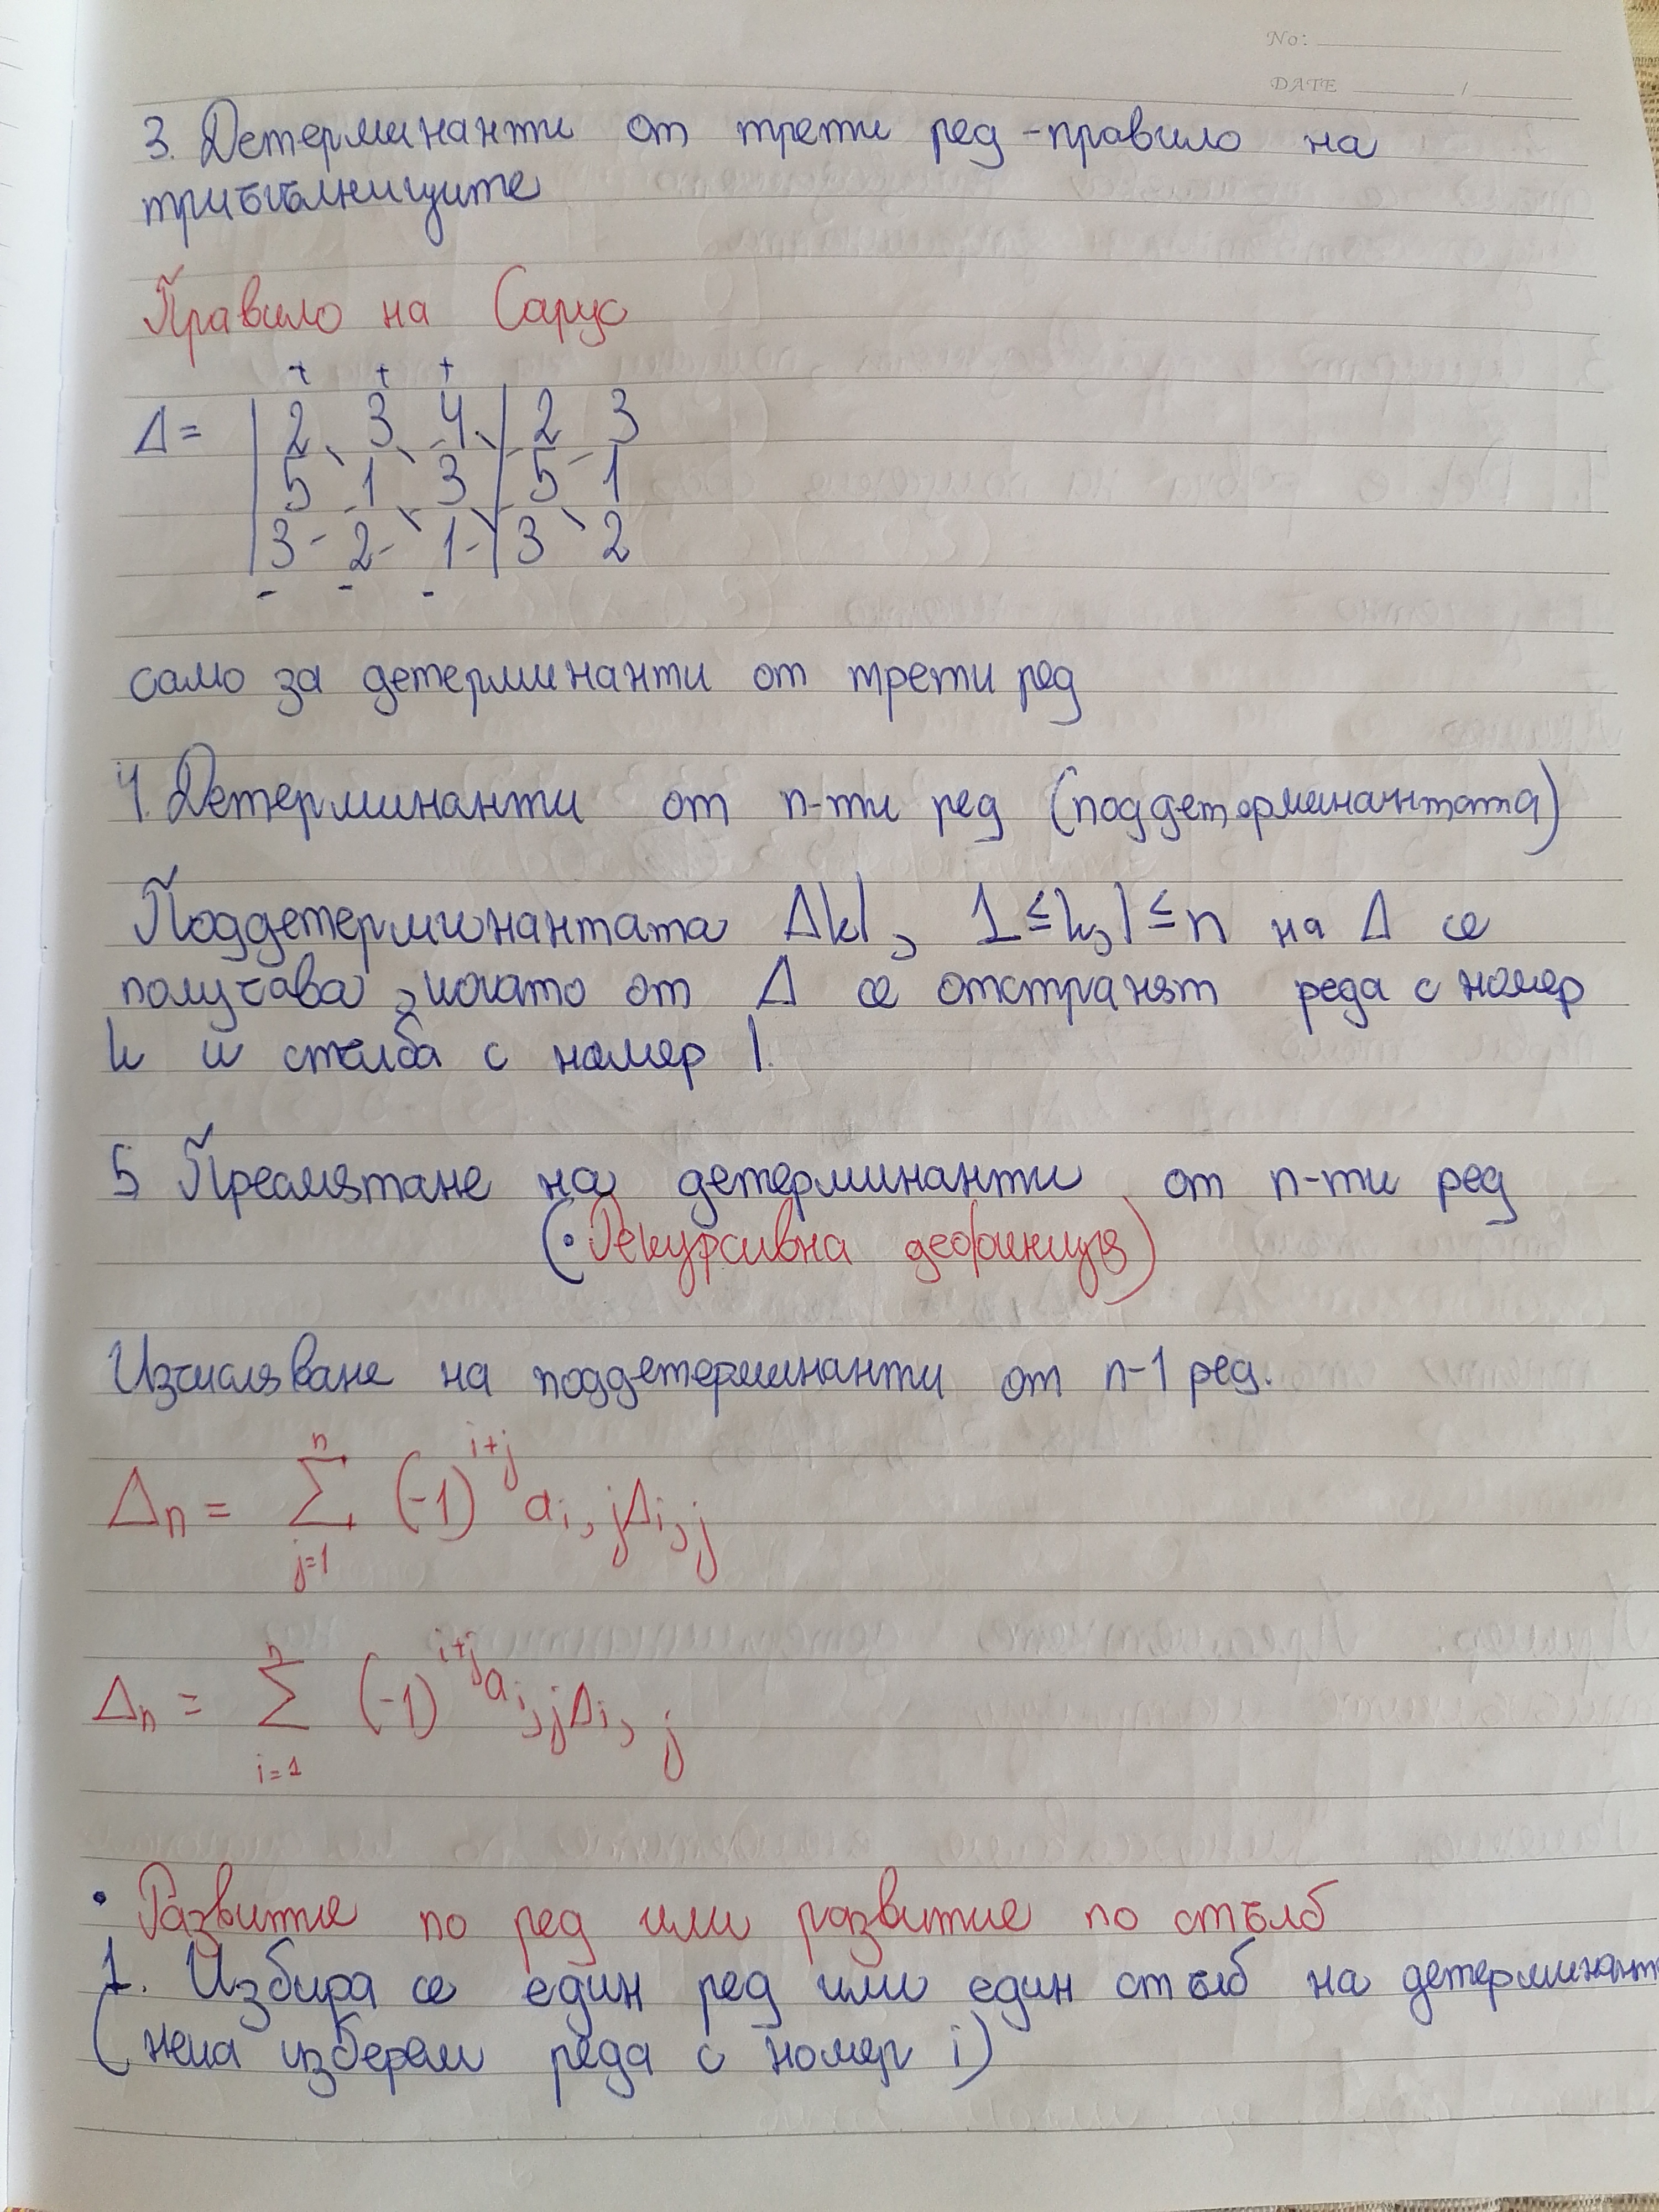 No:
DATE /
3. Детерминанти от трети ред - правило на
триъгълниците
Правило на Сарус
+ + +
Δ = | 2 3 4 | 2 3
| 5 1 3 | 5 1
| 3 2 1 | 3 2
- - -
само за детерминанти от трети ред
4. Детерминанти от n-ти ред (поддетерминантата)
Поддетерминантата Δkl, 1 ≤ k, l ≤ n на Δ се
получава, когато от Δ се отстранят реда с номер
k и стълба с номер l.
5 Пресмятане на детерминанти от n-ти ред
(• Рекурсивна дефиниция)
Изчисляване на поддетерминанти от n-1 ред.
Δn = n Σ j=1 (-1)^i+j ai,jΔi,j
Δn = n Σ i=1 (-1)^i+j ai,jΔi,j
• Развитие по ред или развитие по стълб
1. Избира се един ред или един стълб на детерминант
(нека изберем реда с номер i)